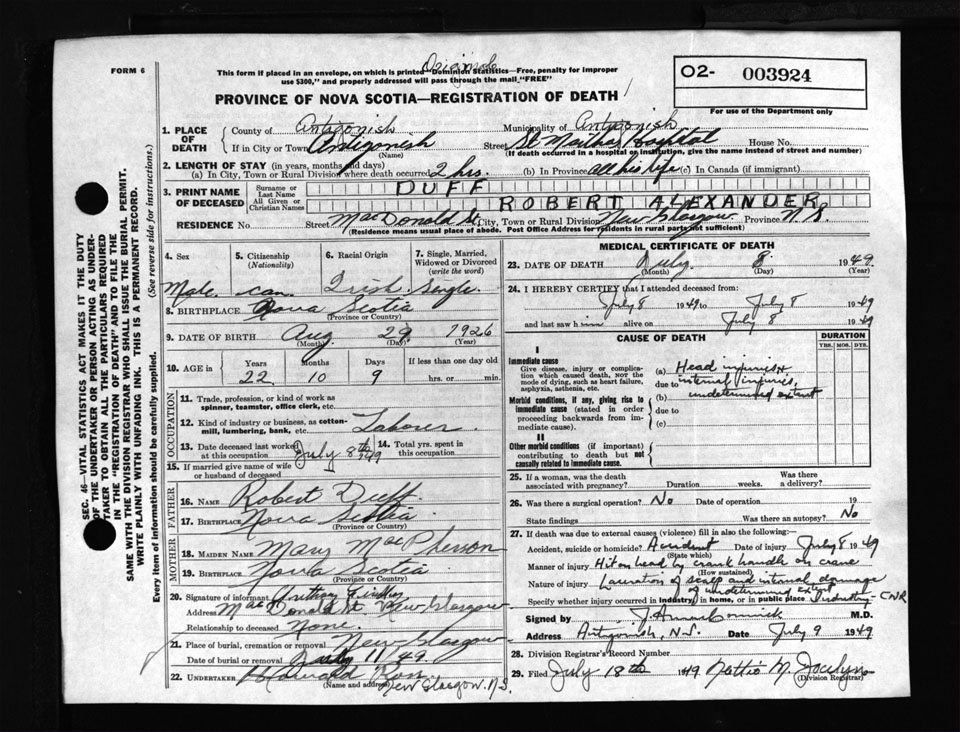 Original
FORM 6
This form if placed in an envelope, on which is printed "Dominion Statistics—Free, penalty for improper
use $300," and properly addressed will pass through the mail, "FREE"
O2- 003924
For use of the Department only
PROVINCE OF NOVA SCOTIA—REGISTRATION OF DEATH
1. PLACE OF DEATH
County of Antigonish Municipality of Antigonish
If in City or Town Antigonish (Name) Street St Martha's Hospital House No.
(If death occurred in a hospital or institution, give the name instead of street and number)
2. LENGTH OF STAY (in years, months and days)
(a) In City, Town or Rural Division where death occurred 2 hrs. (b) In Province all his life (c) In Canada (if immigrant)
3. PRINT NAME OF DECEASED
Surname or Last Name DUFF
All Given or Christian Names ROBERT ALEXANDER
RESIDENCE No. Street MacDonald St. City, Town or Rural Division New Glasgow Province N.S.
(Residence means usual place of abode. Post Office Address for residents in rural parts not sufficient)
4. Sex Male
5. Citizenship (Nationality) Can.
6. Racial Origin Irish
7. Single, Married, Widowed or Divorced (write the word) Single
8. BIRTHPLACE Nova Scotia
(Province or Country)
9. DATE OF BIRTH Aug. 29 1926
(Month) (Day) (Year)
10. AGE in Years Months Days If less than one day old
22 10 9 hrs. or min.
OCCUPATION
11. Trade, profession, or kind of work as
spinner, teamster, office clerk, etc.
12. Kind of industry or business, as cotton-
mill, lumbering, bank, etc. Laborer
13. Date deceased last worked at this occupation July 8th 49
14. Total yrs. spent in this occupation
15. If married give name of wife
or husband of deceased
FATHER
16. NAME Robert Duff
17. BIRTHPLACE Nova Scotia
(Province or Country)
MOTHER
18. MAIDEN NAME Mary MacPherson
19. BIRTHPLACE Nova Scotia
(Province or Country)
20. Signature of informant Anthony
Address MacDonald St New Glasgow
Relationship to deceased None
21. Place of burial, cremation or removal New Glasgow
Date of burial or removal July 11/49.
22. UNDERTAKER Ross
(Name and address) New Glasgow, N.S.
MEDICAL CERTIFICATE OF DEATH
23. DATE OF DEATH July 8 1949
(Month) (Day) (Year)
24. I HEREBY CERTIFY that I attended deceased from:
July 8 1949 to July 8 1949
and last saw him alive on July 8 1949
CAUSE OF DEATH
DURATION
YRS. MOS. DYS.
I
Immediate cause
Give disease, injury or complica-
tion which caused death, NOT the
mode of dying, such as heart failure,
asphyxia, asthenia, etc.
(a) Head injuries &
due to internal injuries,
(b) undetermined extent
Morbid conditions, if any, giving rise to
immediate cause (stated in order
proceeding backwards from im-
mediate cause).
due to
(c)
II
Other morbid conditions (if important)
contributing to death but not
causally related to immediate cause.
25. If a woman, was the death
associated with pregnancy? Duration weeks. Was there a delivery?
26. Was there a surgical operation? No Date of operation 19
State findings Was there an autopsy? No
27. If death was due to external causes (violence) fill in also the following:
Accident, suicide or homicide? Accident Date of injury July 8 1949
(State which)
Manner of injury Hit on head by crank handle on crane
(How sustained)
Nature of injury Laceration of scalp and internal damage
of undetermined extent
Specify whether injury occurred in industry, in home, or in public place Industry - CNR
Signed by M.D.
Address Antigonish, N.S. Date July 9 1949
28. Division Registrar's Record Number
29. Filed July 18th 1949 Nettie M. Jocelyn
(Division Registrar)
SEC. 46—VITAL STATISTICS ACT MAKES IT THE DUTY
OF THE UNDERTAKER OR PERSON ACTING AS UNDER-
TAKER TO OBTAIN ALL THE PARTICULARS REQUIRED
IN THE "REGISTRATION OF DEATH" AND TO FILE THE
SAME WITH THE DIVISION REGISTRAR WHO SHALL ISSUE THE BURIAL PERMIT.
WRITE PLAINLY WITH UNFADING INK. THIS IS A PERMANENT RECORD.
Every item of information should be carefully supplied. (See reverse side for instructions.)